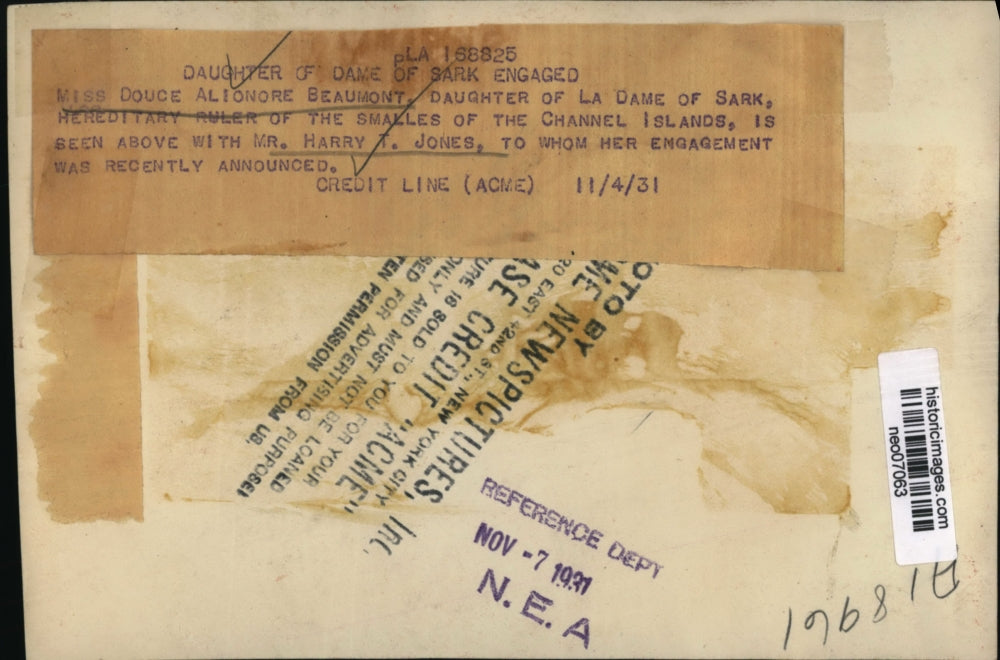 pLA 168825
DAUGHTER OF DAME OF SARK ENGAGED
MISS DOUCE ALIONORE BEAUMONT, DAUGHTER OF LA DAME OF SARK,
HEREDITARY RULER OF THE SMALLES OF THE CHANNEL ISLANDS, IS
SEEN ABOVE WITH MR. HARRY T. JONES, TO WHOM HER ENGAGEMENT
WAS RECENTLY ANNOUNCED.
CREDIT LINE (ACME) 11/4/31
OTO BY
ME NEWSPICTURES, Inc.
20 EAST 42ND ST., NEW YORK CITY
ASE CREDIT "ACME"
TURE IS SOLD TO YOU FOR YOUR
ONLY AND MUST NOT BE LOANED
SED FOR ADVERTISING PURPOSES
TEN PERMISSION FROM US.
REFERENCE DEPT
NOV -7 1931
N. E. A
historicimages.com
neo07063